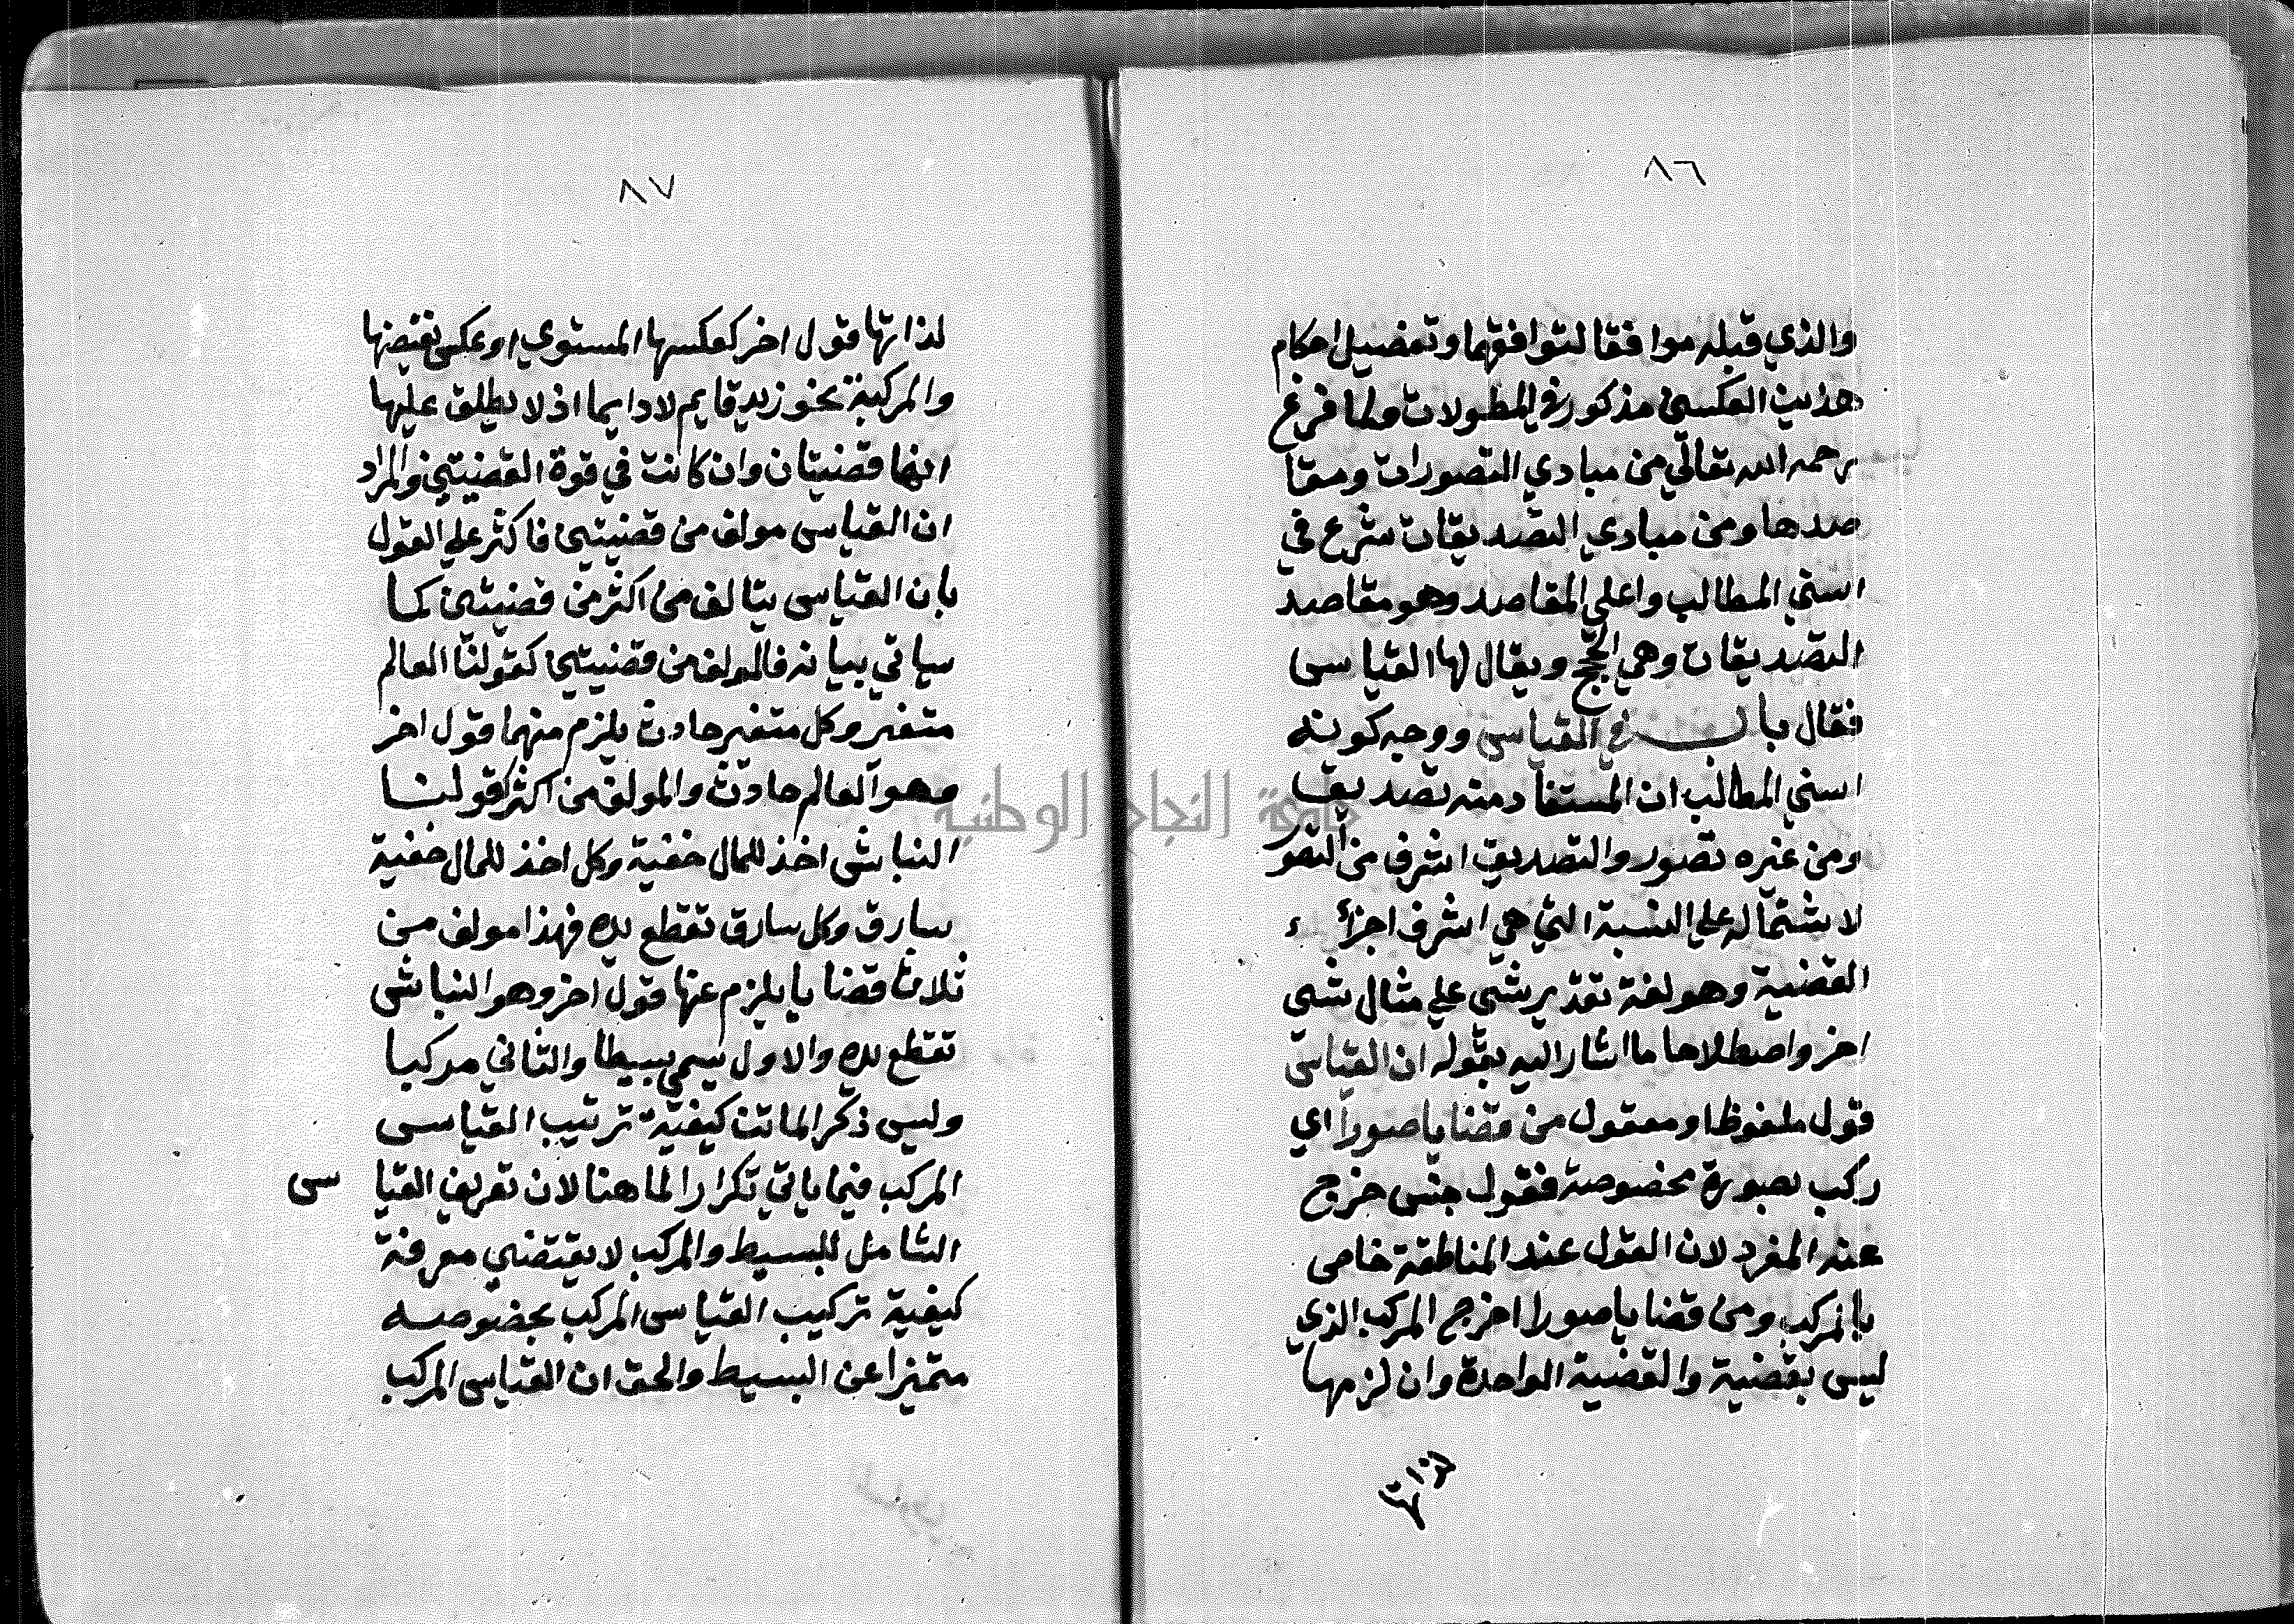 ٨٦
والذي قبله موافقا لتوافقهما وتفصيل احكام
هذين العكسين مذكور في المطولات ولما فرغ
رحمه الله تعالى من مبادي التصورات ومقا
صدها ومن مبادي التصديقات شرع في
اسني المطالب واعلى المقاصد وهو مقاصد
التصديقات وهي الحجج ويقال لها القياس
فقال باب في القياس ووجه كونه
اسني المطالب ان المستفاد منه تصديق
ومن غيره تصور والتصديق اشرف من التصور
لاشتماله على النسبة التي هي اشرف اجزاء
القضية وهو لغة تقدير شي على مثال شي
اخر واصطلاحا ما اشار اليه بقوله ان القياس
قول ملفوظ او معقول من قضايا صورا اي
ركب بصورة مخصوصة فقول جنس خرج
عنه المفرد لان القول عند المناطقة خاص
بالمركب ومن قضايا صورا اخرج المركب الذي
ليس بقضية والقضية الواحدة وان لزمها
لذاتها
٨٧
لذاتها قول اخر كعكسها المستوي او عكس نقيضها
والمركبة نحو زيد قايم لا دايما اذ لا يطلق عليها
انها قضيتان وان كانت في قوة القضيتين والمراد
ان القياس مولف من قضيتين فاكثر على القول
بان القياس يتالف من اكثر من قضيتين كما
سياتي بيانه فالمولف من قضيتين كقولنا العالم
متغير وكل متغير حادث يلزم منهما قول اخر
وهو العالم حادث والمولف من اكثر كقولنا
النباش اخذ للمال خفية وكل اخذ للمال خفية
سارق وكل سارق تقطع يده فهذا مولف من
ثلاث قضايا يلزم عنها قول اخر وهو النباش
تقطع يده والاول يسمى بسيطا والثاني مركبا
وليس ذكر الماتن كيفية ترتيب القياس
المركب فيما ياتي تكرارا لما هنا لان تعريف القياس
الشامل للبسيط والمركب لا يقتضي معرفة
كيفية تركيب القياس المركب بخصوصه
متميزا عن البسيط والحق ان القياس المركب
جامعة النجاح الوطنية